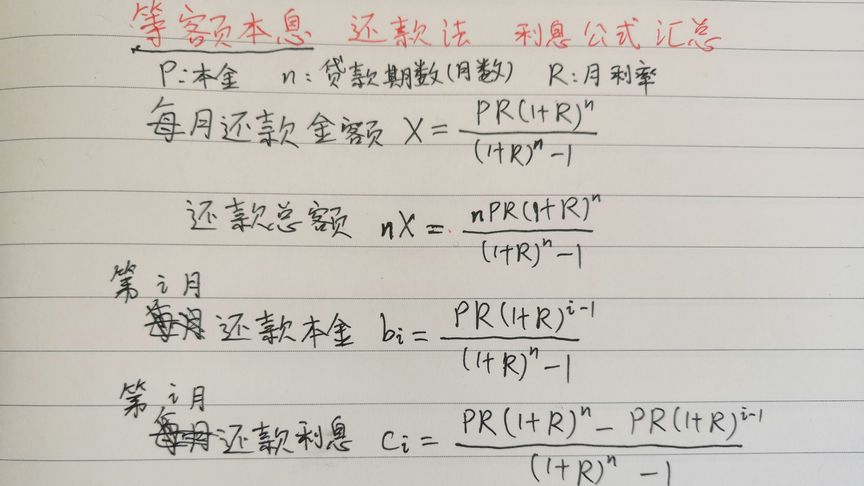 等额本息 还款法 利息公式汇总
P:本金 n:贷款期数(月数) R:月利率
每月还款金额 X = PR(1+R)^n / ((1+R)^n - 1)
还款总额 nX = nPR(1+R)^n / ((1+R)^n - 1)
第i月
还款本金 bi = PR(1+R)^(i-1) / ((1+R)^n - 1)
第i月
还款利息 ci = (PR(1+R)^n - PR(1+R)^(i-1)) / ((1+R)^n - 1)